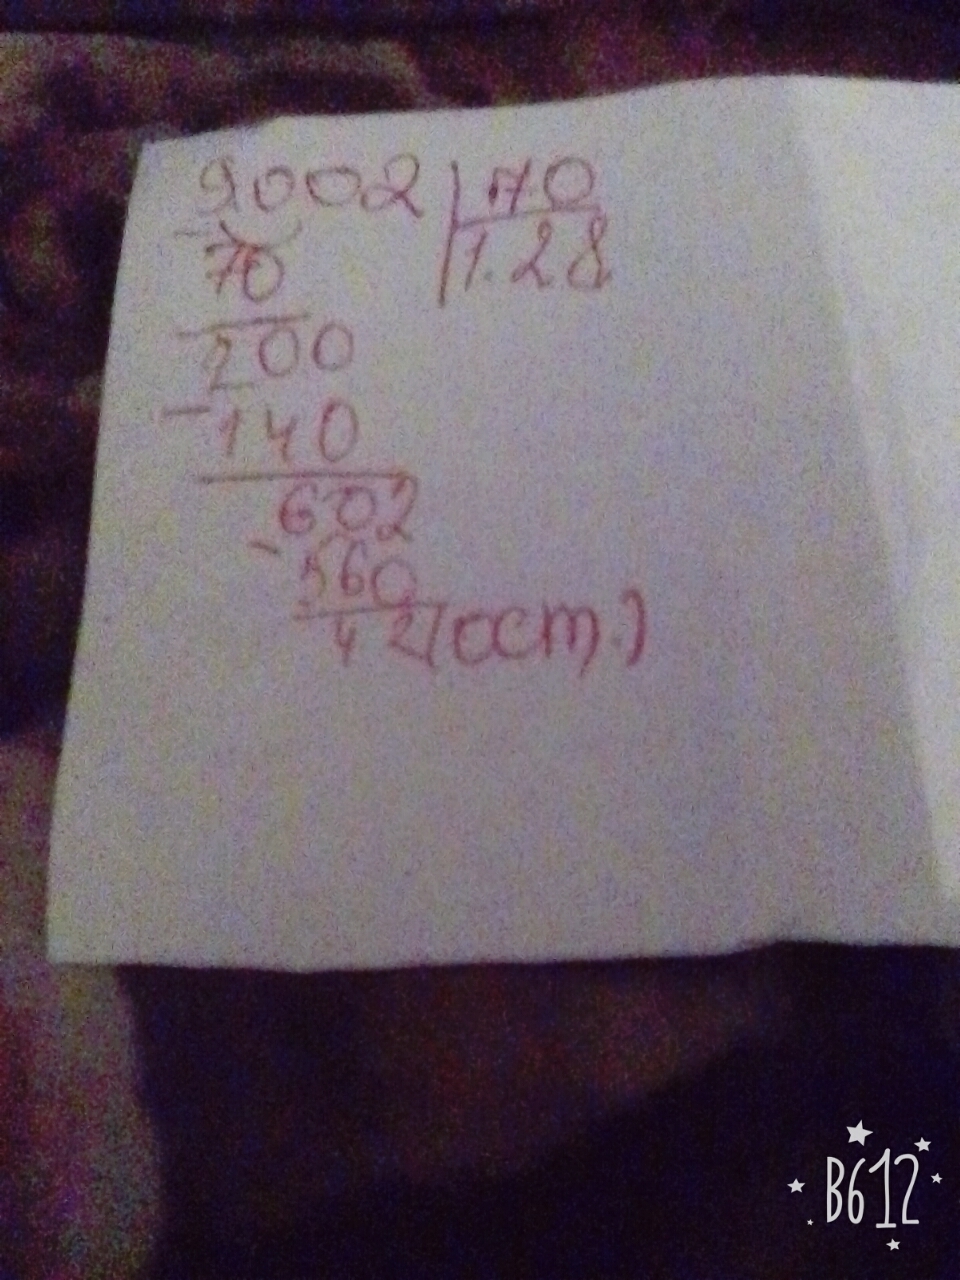 9002 70
70 128
200
140
602
560
42 (ост.)
B612